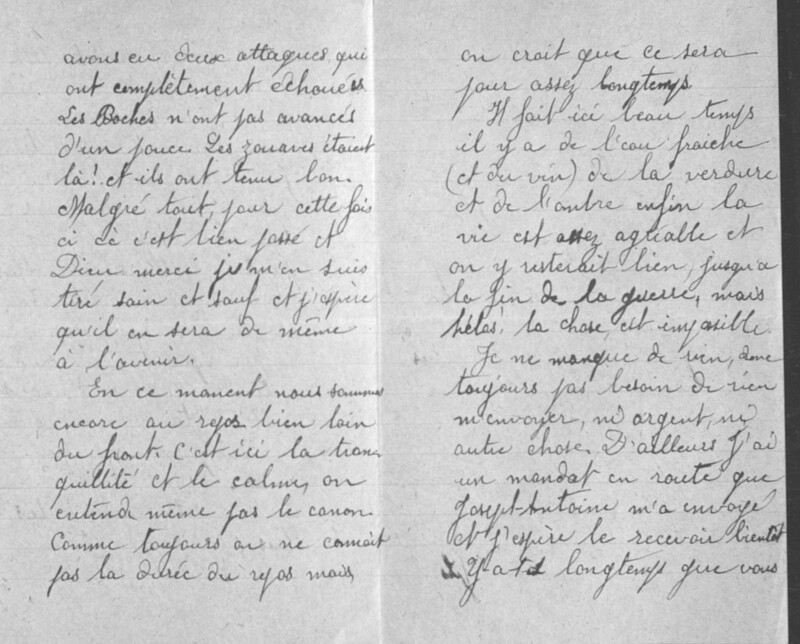 avons eu deux attaques qui
ont complètement échouées
Les Boches n'ont pas avancés
d'un pouce. Les zouaves étaient
là! et ils ont tenu bon.
Malgré tout, pour cette fois
ci c'est bien passé et
Dieu merci je m'en suis
tiré sain et sauf et j'espère
qu'il en sera de même
à l'avenir.
En ce moment nous sommes
encore au repos bien loin
du front. C'est ici la tran
quillité et le calme, on
entend même pas le canon.
Comme toujours on ne connait
pas la durée du repos mais
on crait que ce sera
pour assez longtemps
Il fait ici beau temps
il y a de l'eau fraiche
(et du vin) de la verdure
et de l'ombre enfin la
vie est assez agréable et
on y resterait bien, jusqu'a
la fin de la guerre, mais
hélas! la chose est impossible.
Je ne manque de rien, donc
toujours pas besoin de rien
m'envoyer, ni argent, ni
autre chose. D'ailleurs j'ai
un mandat en route que
Joseph-Antoine m'a envoyé
et j'espère le recevoir bientôt
Y a-t-il longtemps que vous